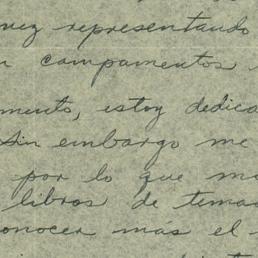 vez representando
campamentos
mento, estoy dedica
Sin embargo me
por lo que
libros de temas
conocer más el